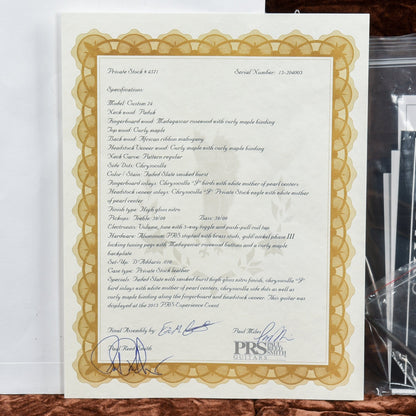 Private Stock # 4371
Serial Number: 13-204003
Specifications
Model: Custom 24
Neck wood: Padouk
Fingerboard wood: Madagascar rosewood with curly maple binding
Top wood: Curly maple
Back wood: African ribbon mahogany
Headstock Veneer wood: Curly maple with curly maple binding
Neck Carve: Pattern regular
Side Dots: Chrysocolla
Color / Stain: Faded Slate smoked burst
Fingerboard inlays: Chrysocolla "J" birds with white mother of pearl centers
Headstock veneer inlays: Chrysocolla "J" Private Stock eagle with white mother
of pearl center
Finish type: High gloss nitro
Pickups: Treble: 58/08 Bass: 58/08
Electronics: Volume, tone with 3-way toggle and push-pull coil tap
Hardware: Aluminum PRS stoptail with brass studs, gold nickel phase III
locking tuning pegs with Madagascar rosewood buttons and a curly maple
backplate
Set-Up: D'Addario .010
Case type: Private Stock leather
Specials: Faded Slate with smoked burst high gloss nitro finish, chrysocolla "J"
bird inlays with white mother of pearl centers, chrysocolla side dots as well as
curly maple binding along the fingerboard and headstock veneer. This guitar was
displayed at the 2013 PRS Experience Event
Final Assembly by:
Paul Miles
Paul Reed Smith
PRS PAUL REED SMITH
GUITARS